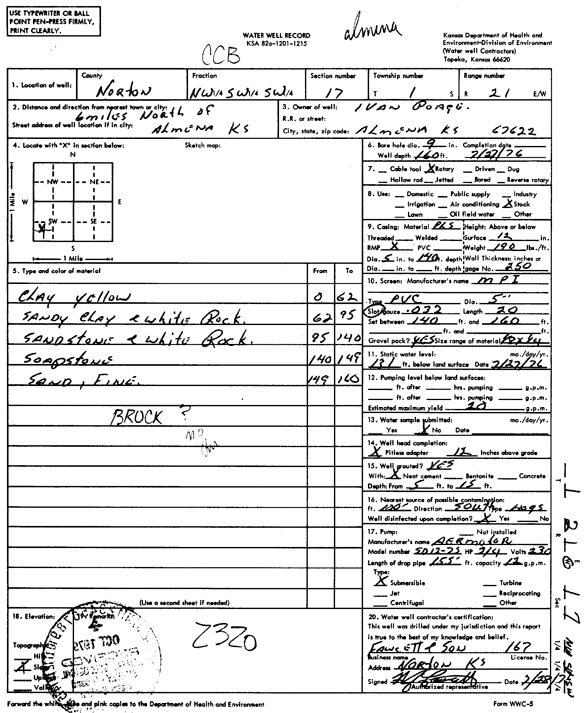 USE TYPEWRITER OR BALL
POINT PEN-PRESS FIRMLY,
PRINT CLEARLY.
WATER WELL RECORD
KSA 82a-1201-1215
CCB
almena
Kansas Department of Health and
Environment-Division of Environment
(Water well Contractors)
Topeka, Kansas 66620
1. Location of well:
County
Norton
Fraction
NW1/4 SW1/4 SW1/4
Section number
17
Township number
T 1 S
Range number
R 21 E/W
2. Distance and direction from nearest town or city:
6 miles North of
Street address of well location if in city:
Almena KS
3. Owner of well: IVAN
R.R. or street:
City, state, zip code: Almena KS 67622
4. Locate with "X" in section below:
Sketch map:
N
NW NE
W E
SW SE
X
S
1 Mile
1 Mile
6. Bore hole dia. 9 in. Completion date
Well depth 160 ft. 2/27/76
7. Cable tool X Rotary Driven Dug
Hollow rod Jetted Bored Reverse rotary
8. Use: Domestic Public supply Industry
Irrigation Air conditioning X Stock
Lawn Oil field water Other
9. Casing: Material PLS Height: Above or below
Threaded Welded Surface 12 in.
RMP X PVC Weight 190 lbs./ft.
Dia. 5 in. to 140 ft. depth Wall Thickness: inches or
Dia. in. to ft. depth gage No. 250
10. Screen: Manufacturer's name MPI
Type PVC Dia. 5"
Slot/gauze .032 Length 20
Set between 140 ft. and 160 ft.
ft. and ft.
Gravel pack? YES Size range of material
11. Static water level: mo./day/yr.
131 ft. below land surface Date 2/27/76
12. Pumping level below land surfaces:
ft. after hrs. pumping g.p.m.
ft. after hrs. pumping g.p.m.
Estimated maximum yield 20 g.p.m.
13. Water sample submitted: mo./day/yr.
Yes X No Date
14. Well head completion:
X Pitless adapter 12 Inches above grade
15. Well grouted? YES
With: X Neat cement Bentonite Concrete
Depth: From 5 ft. to 15 ft.
16. Nearest source of possible contamination:
ft. Direction South Type Hogs
Well disinfected upon completion? X Yes No
17. Pump: Not installed
Manufacturer's name AERMOTOR
Model number SD12-75 HP 3/4 Volts 230
Length of drop pipe 155 ft. capacity 12 g.p.m.
Type:
X Submersible Turbine
Jet Reciprocating
Centrifugal Other
5. Type and color of material
From To
Clay yellow 0 62
Sandy Clay & white Rock. 62 95
Sandstone & white Rock. 95 140
Soapstone 140 149
Sand, Fine. 149 160
BROCK ?
no
(Use a second sheet if needed)
18. Elevation:
Topography:
2320
20. Water well contractor's certification:
This well was drilled under my jurisdiction and this report
is true to the best of my knowledge and belief.
Fawcett & Son 167
Business name License No.
Address Norton KS
Signed Date 2/28/76
Authorized representative
Forward the white, blue and pink copies to the Department of Health and Environment
Form WWC-5